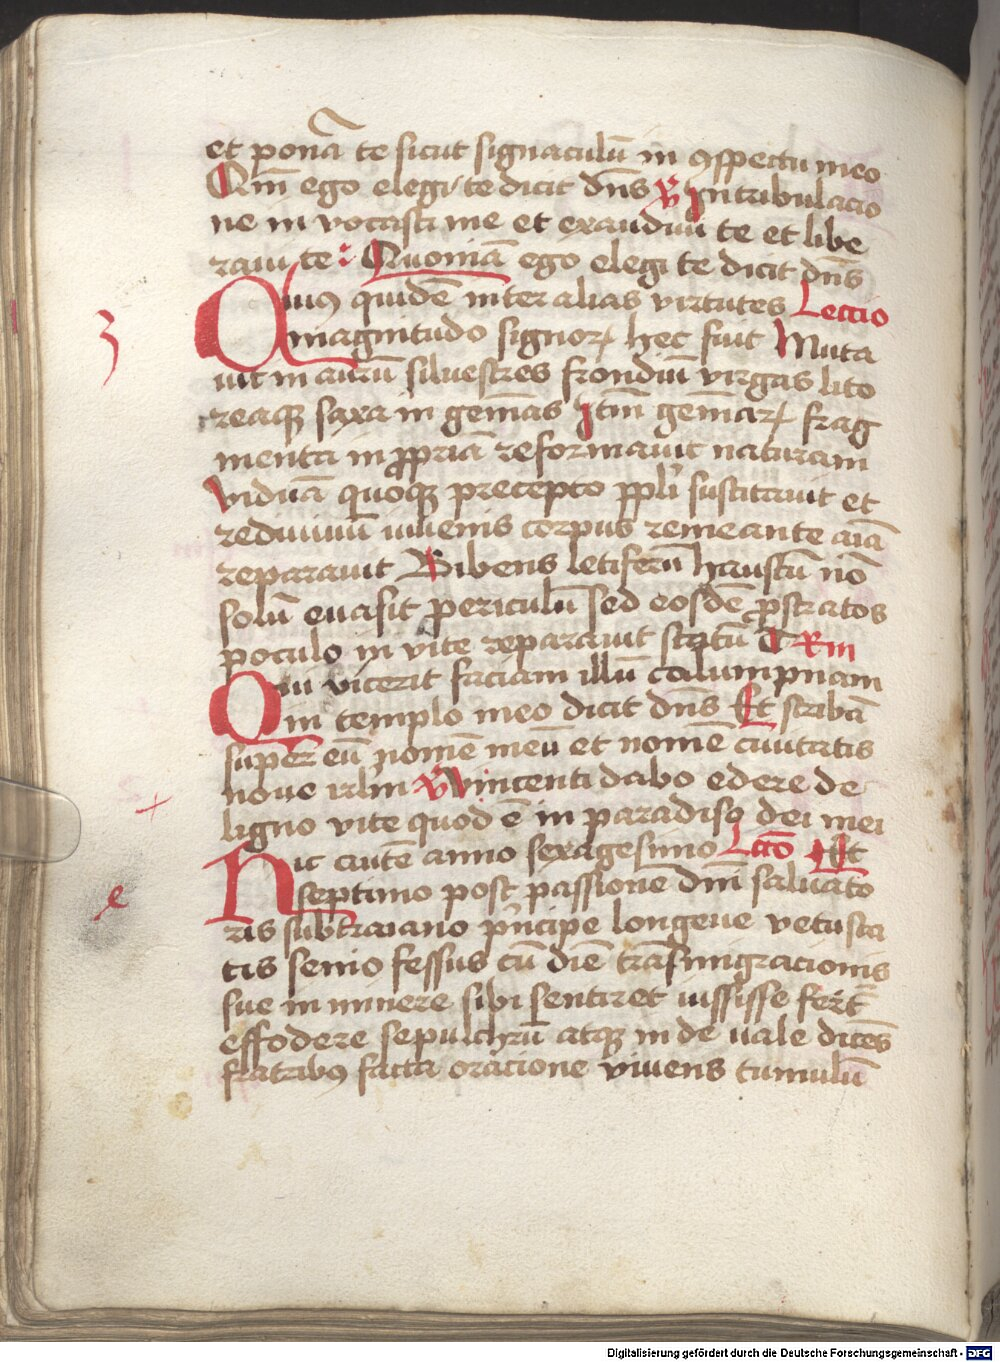 et ponā te sicut signaculū in ꝯspectu meo
Qm̄ ego elegi te dicit dn̄s ℣ In tribulacio
ne in vocasti me et exaudiui te et libe
raui te : Quoniā ego elegi te dicit dn̄s
Cuiꝯ quidē inter alias virtutes Lectio
3
magnitudo signorꝝ hec fuit Muta
uit in aurū siluestres frondiū virgas lito
reaqꝫ saxa in gem̄as Itm̄ gem̄arꝝ frag
menta in ꝓpriā reformauit naturam
Viduā quoqꝫ precepto ppl̓i suscitauit et
rediuiuū iuuenis corpus remeante aīā
reparauit Bibens letiferū haustū nō
solū euasit periculū sed eosdē ꝓstratos
poculo in vite reparauit statū T Rm
Qui vicerit faciam illū columpnam
in templo meo dicit dn̄s Et scribā
super eū nomē meū et nomē ciuitatis
noue irl̄m ℣ Vincenti dabo edere de
ligno vite quod ē in paradiso dei mei
Hic autē anno sexagesimo Lctō Et
septimo post passione dn̄i saluato
e
ris sub traiano p̓ncipe longeue vetusta
tis senio fessus cū diē trāsmigracionis
sue in minere sibi sentiret iussisse fert̄
effodere sepulchrū atqꝫ in de uale dicēs
fratribꝯ facta oracione viuens tumulū
Digitalisierung gefördert durch die Deutsche Forschungsgemeinschaft - DFG